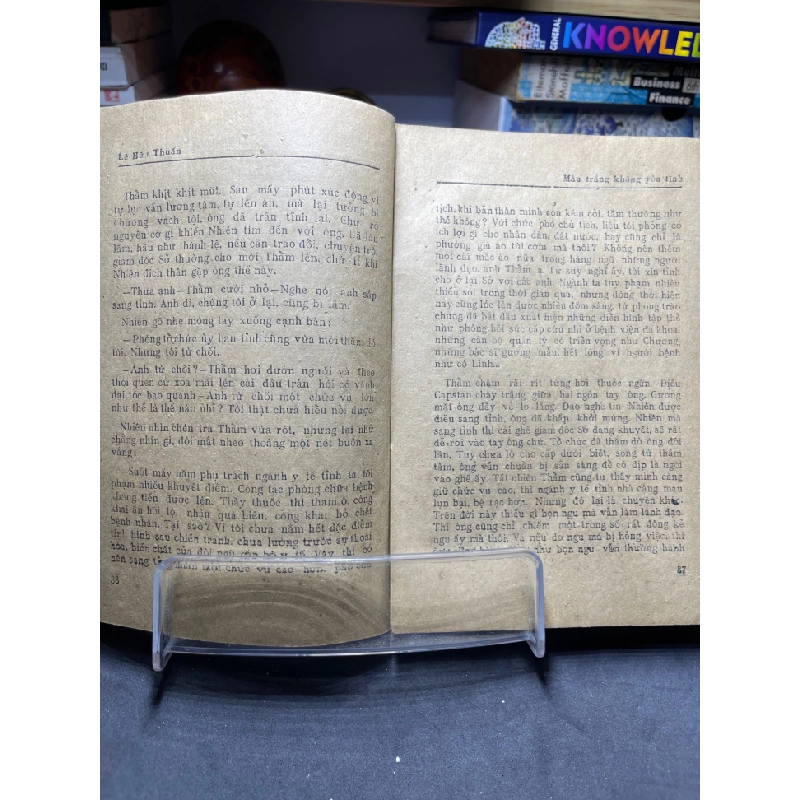 GENERAL
KNOWLED
Business
Finance
Lê Hậu Thuấn
Thầm khịt khịt mũi. Sau mấy phút xúc động vì
tự lục vấn lương tâm, tự lên án, mà lại tưởng bị
chương vạch tội, ông đã trấn tĩnh lại. Chứ có
nguyên cớ gì khiến Nhiên tìm đến với ông. Đã lên
lắm, hầu như hành lễ, nếu cần trao đổi, chuyện trò
giám đốc Sở thường cho mời Thầm lên, chứ ít khi
Nhiên đích thân gặp ông thế này.
—Thưa anh—Thầm cười nhỏ—Nghe nói anh sắp
sang tỉnh. Anh đi, chúng tôi ở lại, cũng bị lắm.
Nhiên gõ nhẹ móng tay xuống cạnh bàn:
—Phòng tổ chức ủy ban tỉnh cũng vừa mới thăm dò
tôi. Nhưng tôi từ chối.
—Anh từ chối?—Thầm hơi dướn người và theo
thói quen cứ xoa mãi lên cái đầu trán hói có vành
tai tóc bao quanh—Anh từ chối một chức vụ lớn
như thế là thế nào nhỉ? Tôi thật chưa hiểu nổi được
Nhiên nhìn chén trà Thầm vừa rót, nhưng lại như
chẳng nhìn gì, đôi mắt nheo thoáng một nét buồn xa
vắng
Suốt mấy năm phụ trách ngành y tế tỉnh ta tôi
phạm nhiều khuyết điểm. Công tác phòng chữa bệnh
không tiến được lên. Thầy thuốc thì tham ô, công
khai ăn hối lộ, nhận quà biển, công khai bỏ chết
bệnh nhân. Tại sao? Vì tôi chưa nắm hết đặc điểm
tình hình sau chiến tranh, chưa lường trước sự tha
hóa, biến chất của đội ngũ cán bộ y tế. Vậy thì có
nên sang tỉnh nắm một chức vụ cao hơn, phó chủ
86
Màu trắng không yên tĩnh
tịch, khi bản thân mình còn kém cỏi, tầm thường như
thế không? Với chức phó chủ tịch, liệu tôi phỏng có
ích lợi gì cho nhân dân, đất nước, hay cũng chỉ là
phường giá áo túi cơm mà thôi? Không nên thêm
một cái mắc áo nữa trong hàng ngũ những người
lãnh đạo, anh Thầm ạ. Tự suy nghĩ ấy, tôi xin tỉnh
cho ở lại Sở với các anh. Ngành ta tuy phạm nhiều
thiếu sót trong thời gian qua, nhưng đồng thời hiện
nay cũng lóe lên được nhiều đốm sáng, từ phong trào
chúng đã bắt đầu xuất hiện những điển hình tập thể
như phòng hồi sức cấp cứu nhi ở bệnh viện đa khoa,
những cán bộ quản lý có triển vọng như Chương,
những bác sĩ gương mẫu, hết lòng vì người bệnh
như cô Linh...
Thầm chậm rãi rít từng hơi thuốc ngửa. Điếu
Capstan cháy trắng giữa hai ngón tay ông. Gương
mặt ông đầy vẻ lo lắng. Dạo nghe tin Nhiên được
điều sang tỉnh, ông đã khấp khởi mừng. Nhiên mà
sang tỉnh thì cái ghế giám đốc Sở đang khuyết, sẽ rất
dễ rơi vào tay ông chứ. Tổ chức đã thăm dò ông đôi
lần. Tuy chưa lộ cho cấp dưới biết, song từ thâm
tâm, ông vẫn chuẩn bị sẵn sàng để có dịp là ngồi
vào ghế ấy. Tất nhiên Thầm cũng tự thấy mình càng
giữ chức vụ cao, thì ngành y tế tỉnh nhà càng mau
lụn bại, bệ rạc hơn. Nhưng đó lại là chuyện khác.
Trên đời này thiếu gì bọn ngu mà vẫn làm lãnh đạo.
Thì ông cũng chỉ chiếm một trong số rất đông kẻ
ngu ấy mà thôi. Và nếu do ngu mà bị hỏng việc, thì
như bọn ngu vẫn thường hành
87